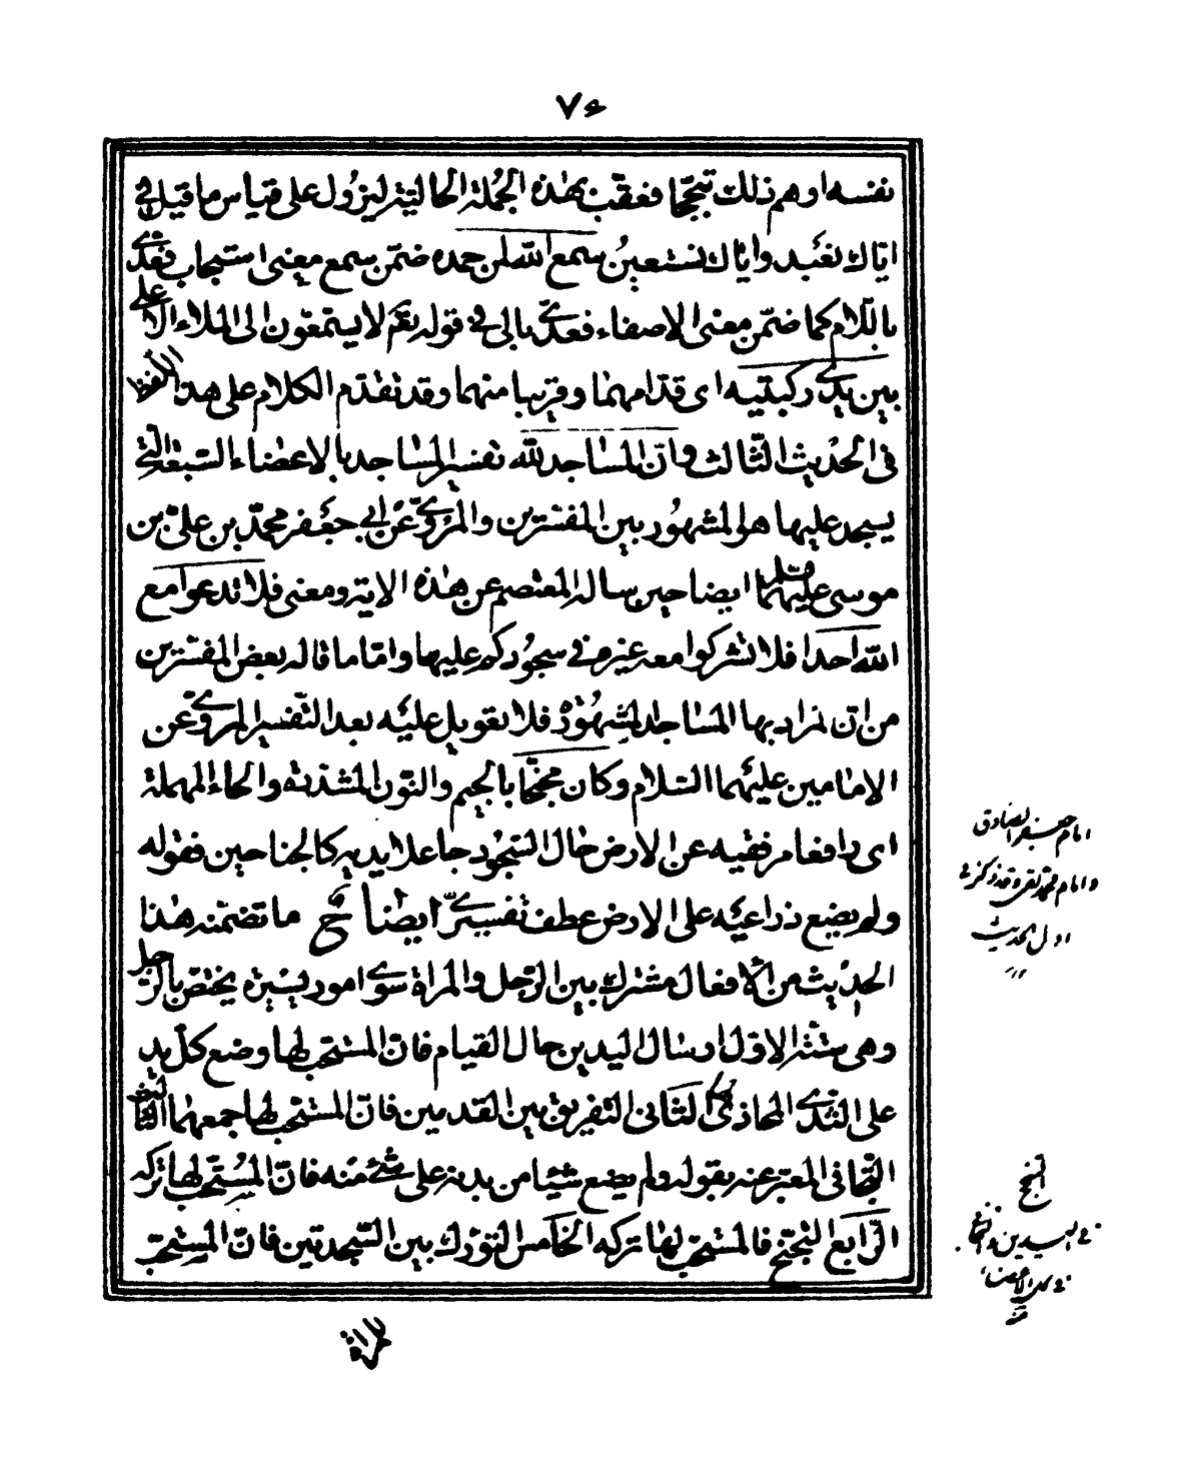 ٧٤
نفسه او هم ذلك تبجّحا فعقّب بهذه الجملة الحالية ليزول على قياس ما قيل في
اياك نعبد واياك نستعين سمع الله لمن حمده ضمّن سمع معنى استجاب فعدّى
باللام كما ضمّن معنى الاصغاء فعدّى بالى في قوله تعم لا يسّمّعون الى الملاء الاعلى
بين يدى ركبتيه اى قدامهما وقريبا منهما وقد تقدم الكلام على هذا اللفظ
في الحديث الثالث وان المساجد لله تفسير المساجد بالاعضاء السبعة التي
يسجد عليها هو المشهور بين المفسرين والمروى عن ابي جعفر محمد بن علي بن
موسى عليهم ايضا حين ساله المعتصم عن هذه الاية ومعنى فلا تدعوا مع
الله احدا فلا تشركوا معه غيره في سجودكم عليها واما ما قاله بعض المفسرين
من ان المراد بها المساجد المشهورة فلا تعويل عليه بعد التفسير المروى عن
الامامين عليهما السلام وكان مجنّحا بالجيم والنون المشددة والحاء المهملة
اى رافعا مرفقيه عن الارض حال السجود جاعلا يديه كالجناحين فقوله
ولم يضع ذراعيه على الارض عطف تفسيرىّ ايضا ما تضمنه هذا
الحديث من الافعال مشترك بين الرجل والمراة سوى امور يسيرة يختص بالرجل
وهى ستة الاول ارسال اليدين حال القيام فان المستحب لها وضع كل يد
على الثدى المحاذى لها الثانى التفريق بين القدمين فان المستحب لها جمعهما الثالث
التجافى المعبر عنه بقوله ولم يضع شيئا من بدنه على شئ منه فان المستحب لها تركه
الرابع التجنيح فالمستحب لها تركه الخامس التورك بين السجدتين فان المستحب
للمراة
امام جعفر الصادق
وامام محمد تقى وقد ذكر في
اول الحديث